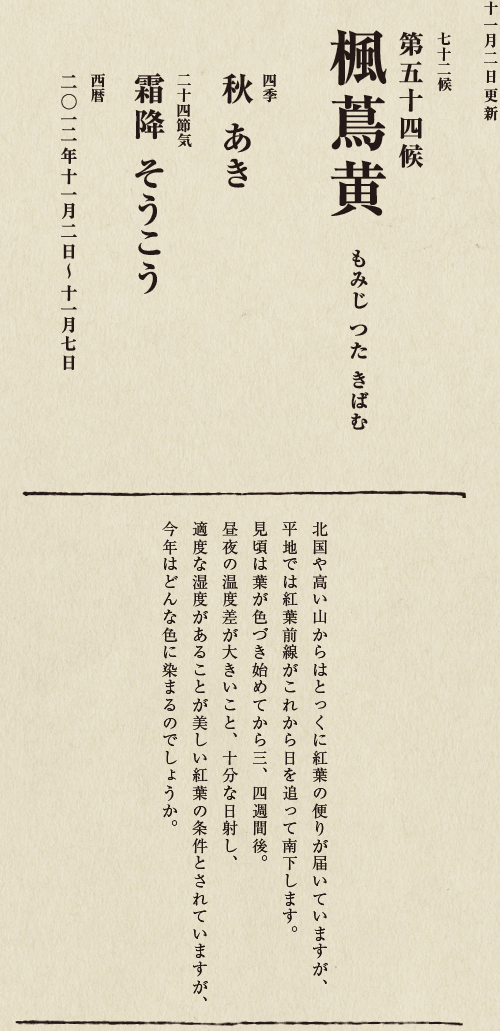 十一月二日更新
七十二候
第五十四候
楓蔦黄 もみじ つた きばむ
四季
秋 あき
二十四節気
霜降 そうこう
西暦
二〇一二年十一月二日〜十一月七日
北国や高い山からはとっくに紅葉の便りが届いていますが、
平地では紅葉前線がこれから日を追って南下します。
見頃は葉が色づき始めてから三、四週間後。
昼夜の温度差が大きいこと、十分な日射し、
適度な湿度があることが美しい紅葉の条件とされていますが、
今年はどんな色に染まるのでしょうか。